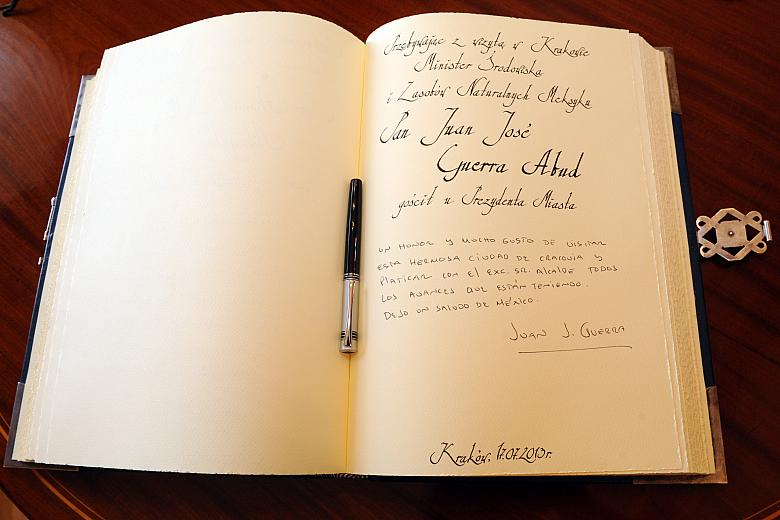 Przebywając z wizytą w Krakowie
Minister Środowiska
i Zasobów Naturalnych Meksyku
Pan Juan José
Guerra Abud
gościł u Prezydenta Miasta
UN HONOR Y MUCHO GUSTO DE VISITAR
ESTA HERMOSA CIUDAD DE CRACOVIA Y
PLATICAR CON EL EXC. SR. ALCALDE TODOS
LOS AVANCES QUE ESTÁN TENIENDO.
DEJO UN SALUDO DE MÉXICO.
JUAN J. GUERRA
Kraków, 17.07.2013r.